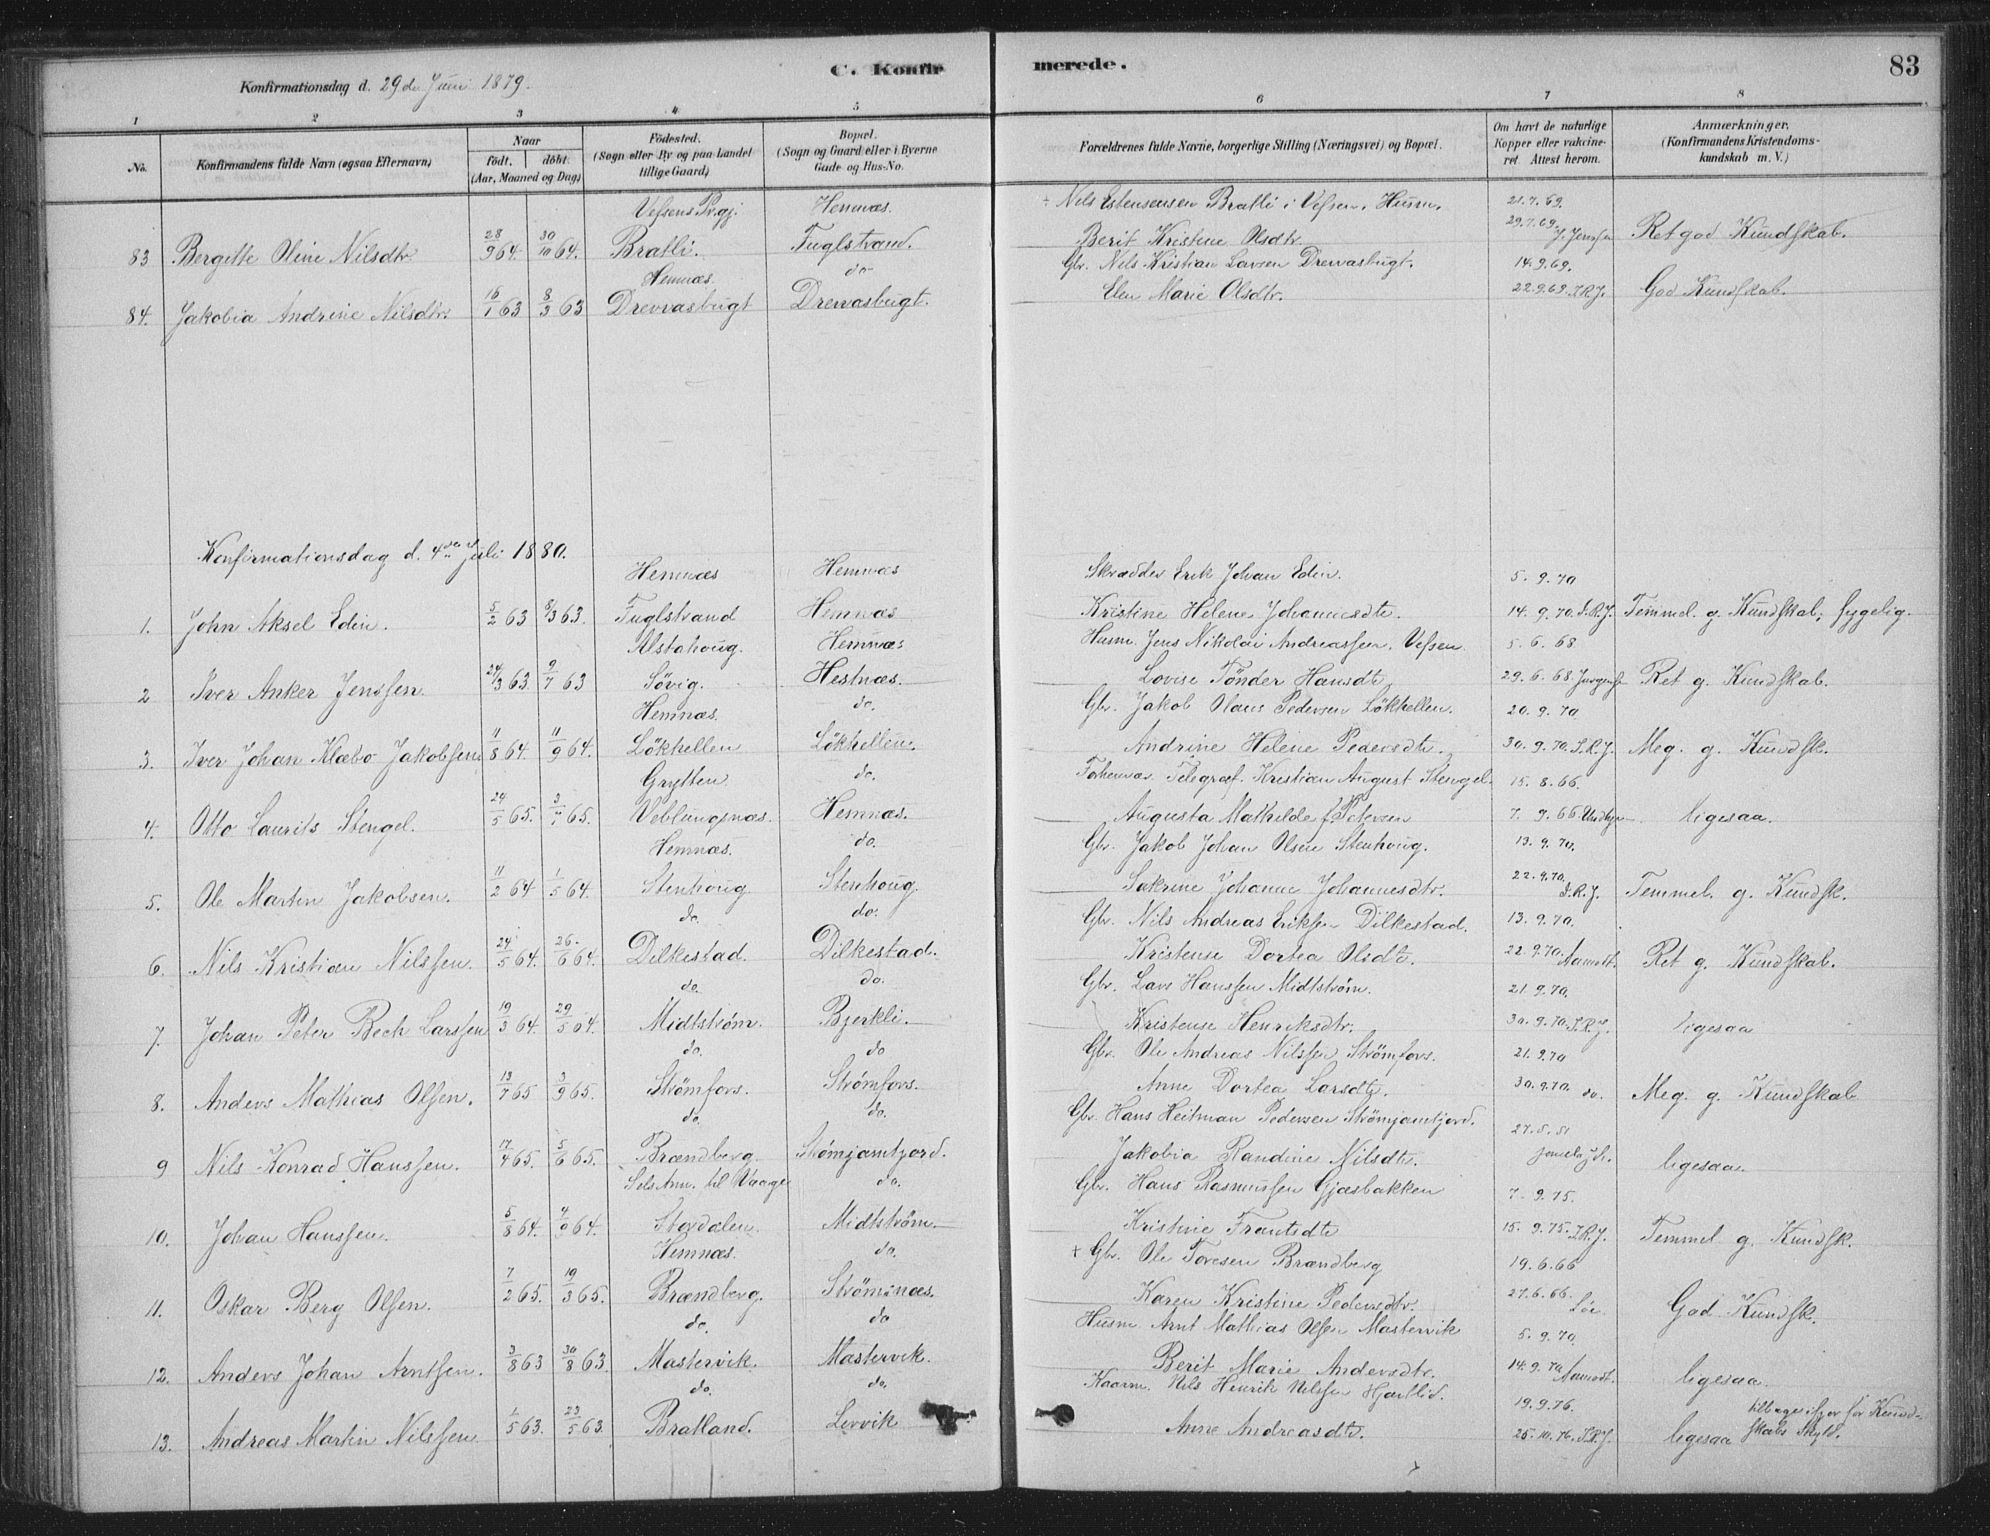 Konfirmationsdag d. 29de Juni 1879.
C. Konfirmerede.
83
1 2 3 4 5 6 7 8
No.
Konfirmandens fulde Navn (ogsaa Efternavn)
Naar
født, døbt.
(Aar, Maaned og Dag)
Fødested.
(Sogn eller By og paa Landet
tillige Gaard)
Bopæl.
(Sogn og Gaard eller i Byerne
Gade og Hus-No.
Forældrenes fulde Navne, borgerlige Stilling (Næringsvei) og Bopæl.
Om havt de naturlige
Kopper eller vakcine-
ret. Attest herom.
Anmærkninger.
(Konfirmandens Kristendoms-
kundskab m. V.)
Vefsens Pr.gj. Hemnæs. Nils Estensensen Bratli i Vefsen. Husm. 21.7.69.
83 Bergitte Oline Nilsdtr 28/9 64. 30/10 64. Bratli. Fuglstrand. Berit Kristine Olsdtr. 29.7.69. J. Jenssen Ret god Kundskab.
Hemnæs. do Gbr. Nils Kristian Larsen Drevvasbugt. 14.9.69.
84. Jakobia Andrine Nilsdtr. 16/1 63 8/3 63 Drevvasbugt Drevvasbugt. Elen Marie Olsdtr. 22.9.69. J.R.J. God Kundskab.
Konfirmationsdag d. 4de Juli 1880.
Hemnæs Hemnæs Skrædder Erik Johan Edin. 5.9.70
1. John Aksel Edin. 5/2 63 8/3 63. Fuglstrand Hemnæs Kristine Helene Johannesdtr. 14.9.70. J.R.J. Temmel. g. Kundskab, sygelig.
Alstahoug. Hemnæs Husm. Jens Nikolai Andreassen. Vefsen. 5.6.68
2 Iver Anker Jenssen 24/3 63. 9/7 63 Søvig. Hestnæs. Lovise Tønder Hansdtr. 29.6.68. Ret g. Kundskab.
Hemnæs. do. Gbr. Jakob Olaus Pedersen Løkhellen. 20.9.70
3. Iver Johan Klæbo Jakobsen 11/8 64. 11/9 64. Løkhellen Løkhellen. Andrine Helene Pedersdtr. 30.9.70. J.R.J. Meg. g. Kundsk.
Grytten do. Telegraf. Kristian August Stengel. 15.8.66.
4. Otto Laurits Stengel. 24/5 65. 3/7 65. Veblungsnæs. Hemnæs. Augusta Mathilde f. Petersen 7.9.66 ligesaa.
Hemnæs. do. Gbr. Jakob Johan Olsen Stenhoug. 13.9.70.
5. Ole Martin Jakobsen. 11/2 64 1/5 64. Stenhoug Stenhoug. Sakrine Johanne Johannesdtr. 22.9.70. J.R.J. Temmel. g. Kundsk.
do. do. Gbr. Nils Andreas Eriksen Dilkestad. 13.9.70.
6. Nils Kristian Nilssen. 24/5 64. 26/6 64. Dilkestad. Dilkestad. Kristense Dortea Olsdtr. 22.9.70. Aamodt. Ret g. Kundskab.
do. do. Gbr. Lars Hanssen Midtstrøm. 21.9.70.
7. Johan Peter Bech Larssen 19/3 64. 29/5 64. Midtstrøm. Bjerkli. Kristense Henriksdtr. 30.9.70. J.R.J. ligesaa
do. do Gbr. Ole Andreas Nilssen Strømfors. 21.9.70
8. Anders Mathias Olsen. 13/7 65 3/9 65. Strømfors. Strømfors. Anne Dortea Larsdtr. 30.9.70. do. Meg. g. Kundskab
do. do. Gbr. Hans Heitman Pedersen Strømjamtjord. 27.5.51
9 Nils Konrad Hanssen. 17/4 65. 5/6 65. Brændberg. Strømjamtjord. Jakobia Randine Nilsdtr. ligesaa.
do. Gbr. Hans Rasmussen Gjæsbakken 7.9.75.
10. Johan Hanssen. 5/8 64. 4/9 64. Stordalen. Midtstrøm. Kristine Frantsdtr 15.9.75. J.R.J. Temmel g. Kundsk.
Hemnæs. do. + Gbr. Ole Toresen Brændberg 19.6.66
11. Oskar Berg Olsen. 7/2 65. 19/3 65. Brændberg. Strømsnæs. Karen Kristine Pedersdtr. 27.6.66. God Kundsk.
do. do Husm Arnt Mathias Olsen Mastervik 5.9.70.
12. Anders Johan Arntsen. 3/8 63 30/8 63 Mastervik. Mastervik. Berit Marie Andersdtr. 14.9.70 Aamodt. ligesaa.
do. do. Kaarm. Nils Henrik Nilssen Hjartlid. 19.9.76. tilbage ifjor for Kund-
13. Andreas Martin Nilssen 1/5 63. 23/5 63. Bratland. Levvik Anne Andreasdtr. 25.10.76. J.R.J. ligesaa skabs Skyld.